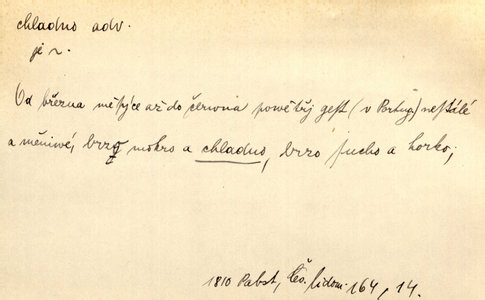 chladno adv.
je r.
Od března měsýce až do čerwna powětřj gest (v Portug.) nestálé
a měniwé, brzo mokro a chladno, brzo sucho a horko;
1810 Pabst, Čs. lidom. 164, 14.